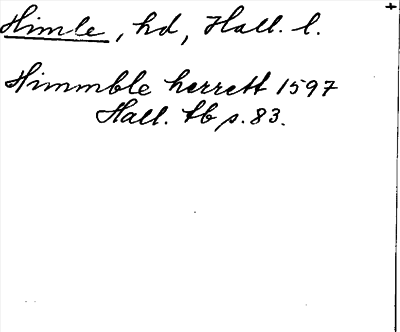 Himle, hd, Hall. l.
Himmble herrett 1597
Hall. tb s. 83.